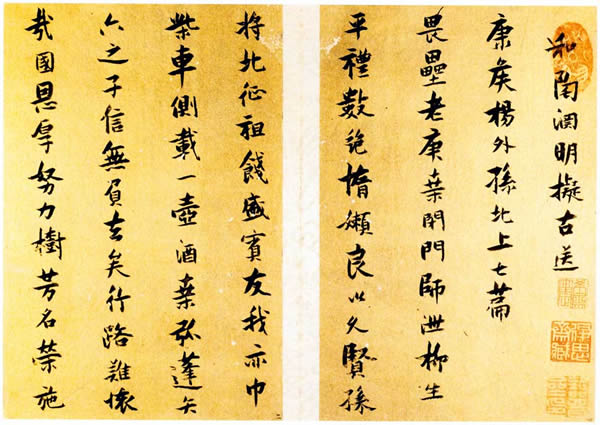 和陶淵明擬古送
康侯楊外孫北上七篇
畏壘老庚桑閉門師泄柳生
平禮數絕惰嬾良以久賢孫
將北征祖餞盛賓友我亦巾
柴車側載一壺酒桑弧蓬矢
六之子信無負去矣行路難懷
哉國恩厚努力樹芳名榮施